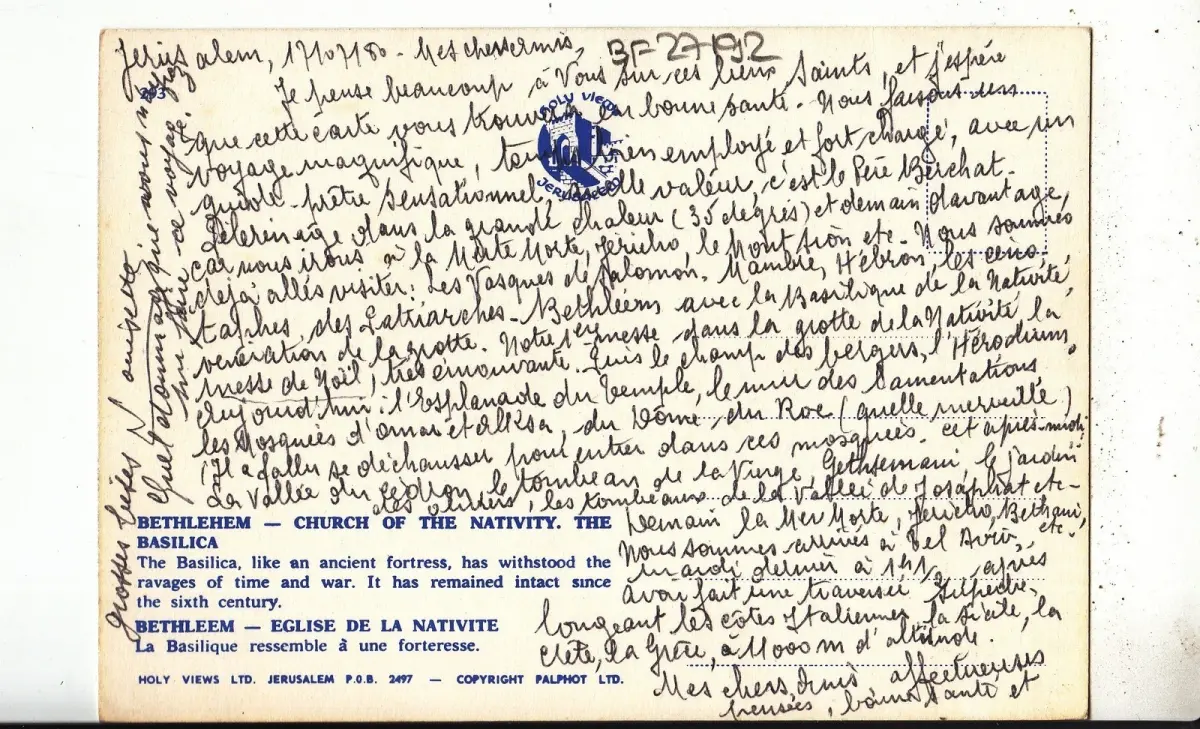 Jérusalem, 17/07/80 - Mes chers amis,
BF 27192
Je pense beaucoup à Vous sur ces lieux saints, et j'espère
que cette carte vous trouvera en bonne santé - Nous faisons un
voyage magnifique, temps bien employé et fort chargé, avec un
guide-prêtre sensationnel, de valeur, c'est le Père
Pélerinage dans la grande chaleur (35 degrés) et demain davantage,
car nous irons à la Mer Morte, Jéricho, le Mont Sion etc - Nous sommes
déjà allés visiter: Les Vasques de Salomon. Mambré, Hébron, les céno
taphes des Patriarches - Bethléem avec la Basilique de la Nativité,
vénération de la grotte. Notre 1ère messe dans la grotte de la Nativité, la
messe de Noël, très émouvante. Puis le champ des bergers, l'Hérodium,
Aujourd'hui: l'Esplanade du Temple, le mur des Lamentations,
les Mosquées d'Omar et Al Ksa, du Dôme du Roc (quelle merveille)
(Il a fallu se déchausser pour entrer dans ces mosquées. Cet après-midi
La Vallée du Cédron, le tombeau de la Vierge, Gethsemani, le jardin
des oliviers, les tombeaux de la Vallée de Josaphat etc -
Demain la Mer Morte, Jéricho, Béthanie,
etc.
Nous sommes arrivés à Tel Aviv,
mardi dernier à 14h, après
avoir fait une traversée superbe,
longeant les côtes Italiennes, la Sicile, la
Crète, la Grèce, à 11000m d'altitude.
Mes chers amis, affectueuses
pensées, bonne santé et
grosses bises
Quel dommage que vous n'ayez
pu faire ce voyage.
HOLY VIEWS
JERUSALEM
BETHLEHEM — CHURCH OF THE NATIVITY. THE
BASILICA
The Basilica, like an ancient fortress, has withstood the
ravages of time and war. It has remained intact since
the sixth century.
BETHLEEM — EGLISE DE LA NATIVITE
La Basilique ressemble à une forteresse.
HOLY VIEWS LTD. JERUSALEM P.O.B. 2497 — COPYRIGHT PALPHOT LTD.